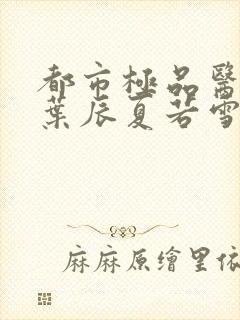 都市極品醫
葉辰夏若雪
麻麻原繪里依